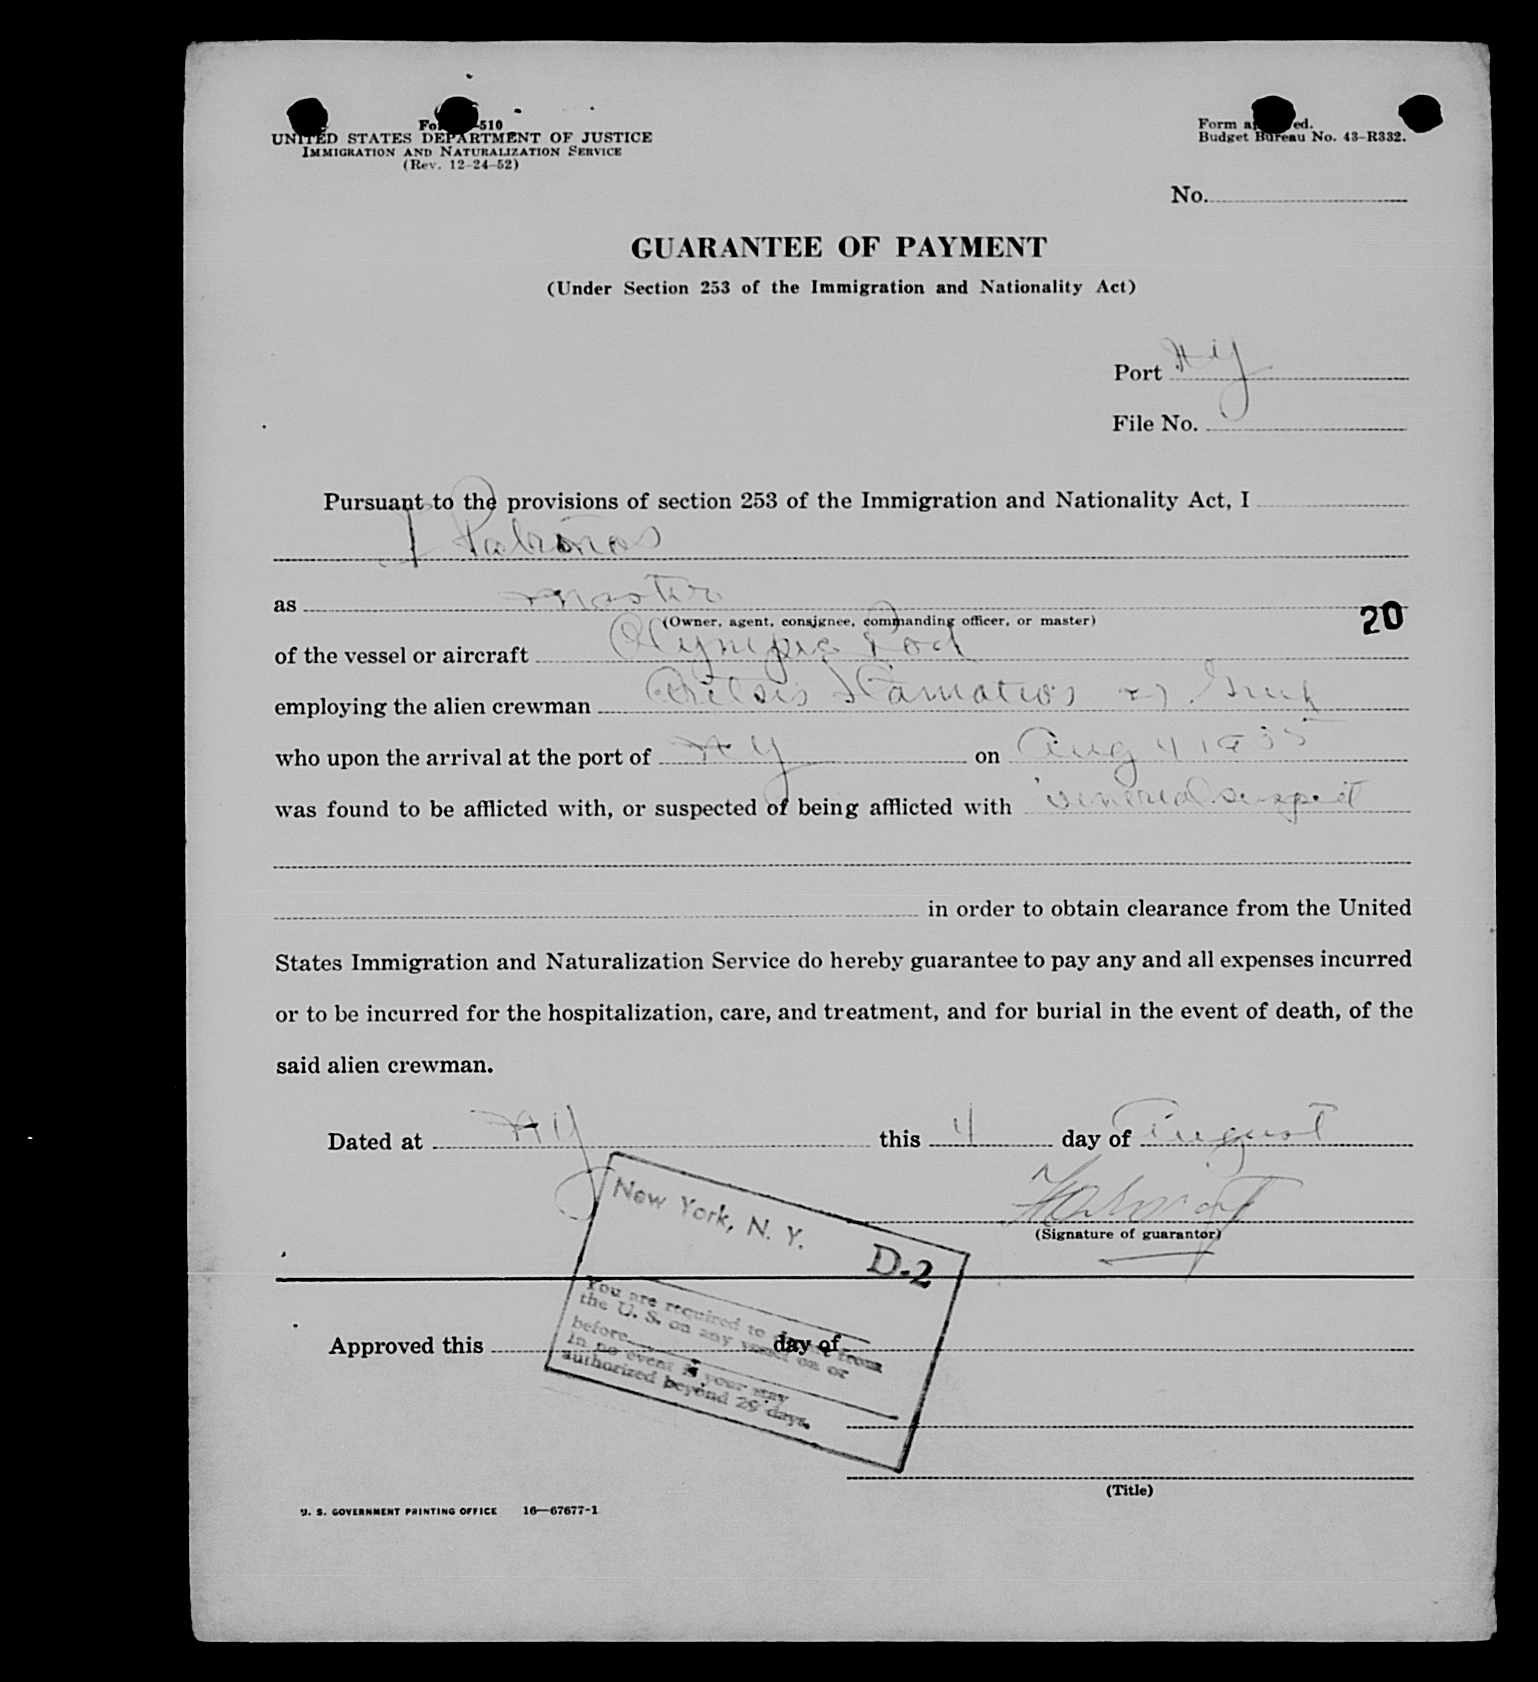 Form -510
UNITED STATES DEPARTMENT OF JUSTICE
IMMIGRATION AND NATURALIZATION SERVICE
(Rev. 12-24-52)
Form ap ed.
Budget Bureau No. 43-R332.
No.
GUARANTEE OF PAYMENT
(Under Section 253 of the Immigration and Nationality Act)
Port NY
File No.
Pursuant to the provisions of section 253 of the Immigration and Nationality Act, I
as master
(Owner, agent, consignee, commanding officer, or master)
20
of the vessel or aircraft Olympic
employing the alien crewman Stamatios Greek
who upon the arrival at the port of NY on Aug 4 1955
was found to be afflicted with, or suspected of being afflicted with venereal suspect
in order to obtain clearance from the United
States Immigration and Naturalization Service do hereby guarantee to pay any and all expenses incurred
or to be incurred for the hospitalization, care, and treatment, and for burial in the event of death, of the
said alien crewman.
Dated at NY this 4 day of August
(Signature of guarantor)
New York, N. Y.
D-2
You are required to from
the U. S. on any vessel on or
before
In no event is your stay
authorized beyond 29 days.
Approved this day of
(Title)
U. S. GOVERNMENT PRINTING OFFICE 16—67677-1